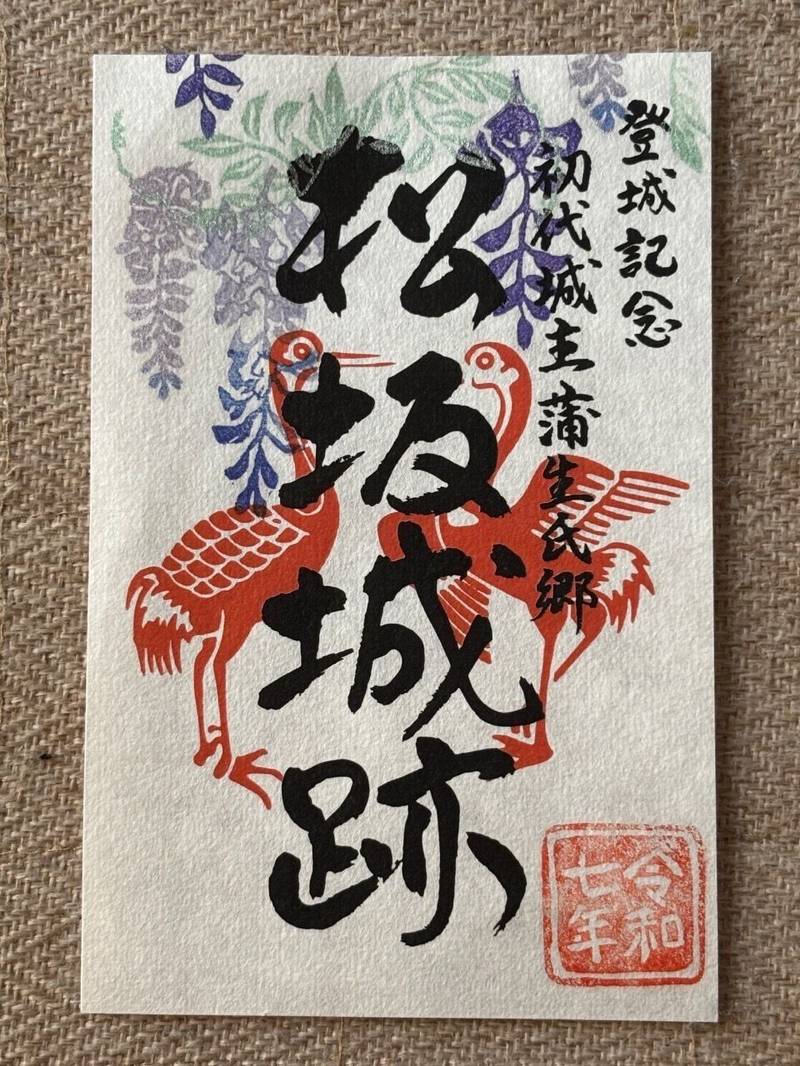 登城記念
初代城主蒲生氏郷
松坂城跡
令和
七年